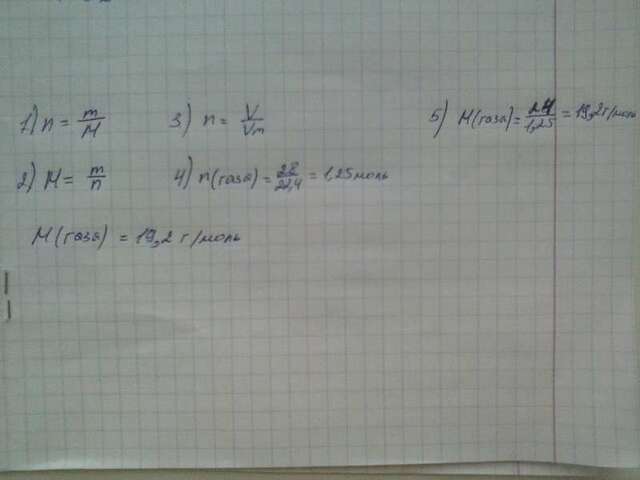 1) n = m/M
3) n = V/Vm
5) M(газа) = 24/1,25 = 19,2 г/моль
2) M = m/n
4) n(газа) = 28/22,4 = 1,25 моль
M(газа) = 19,2 г/моль